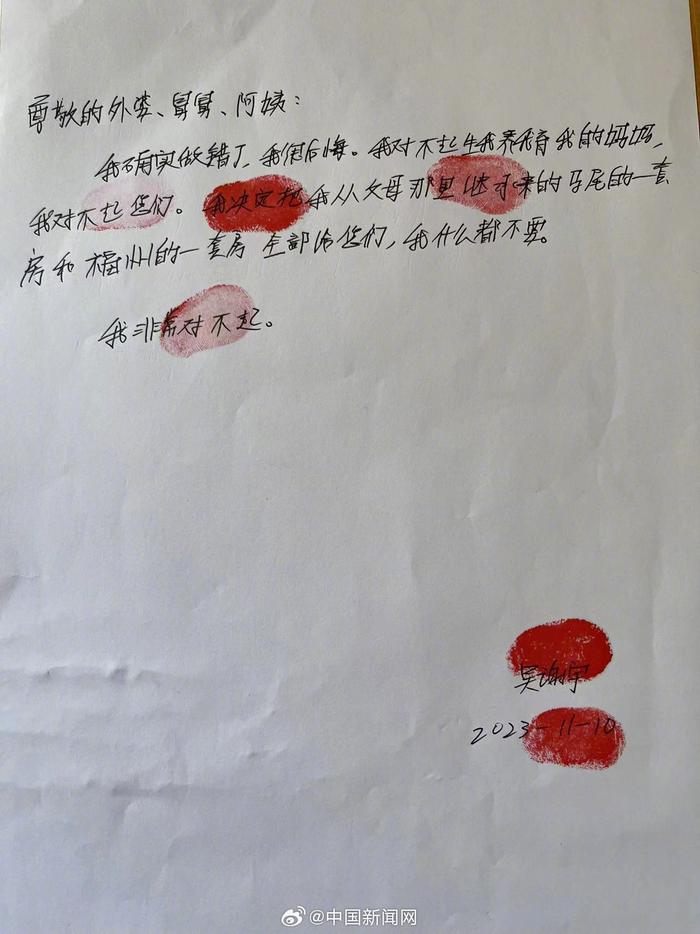 尊敬的外婆、舅舅、阿姨:
我确实做错了,我很后悔。我对不起生我养我育我的妈妈,
我对不起您们。我决定把我从父母那里继承来的马尾的一套
房和福州的一套房全部给您们,我什么都不要。
我非常对不起。
吴谢宇
2023-11-10
@中国新闻网